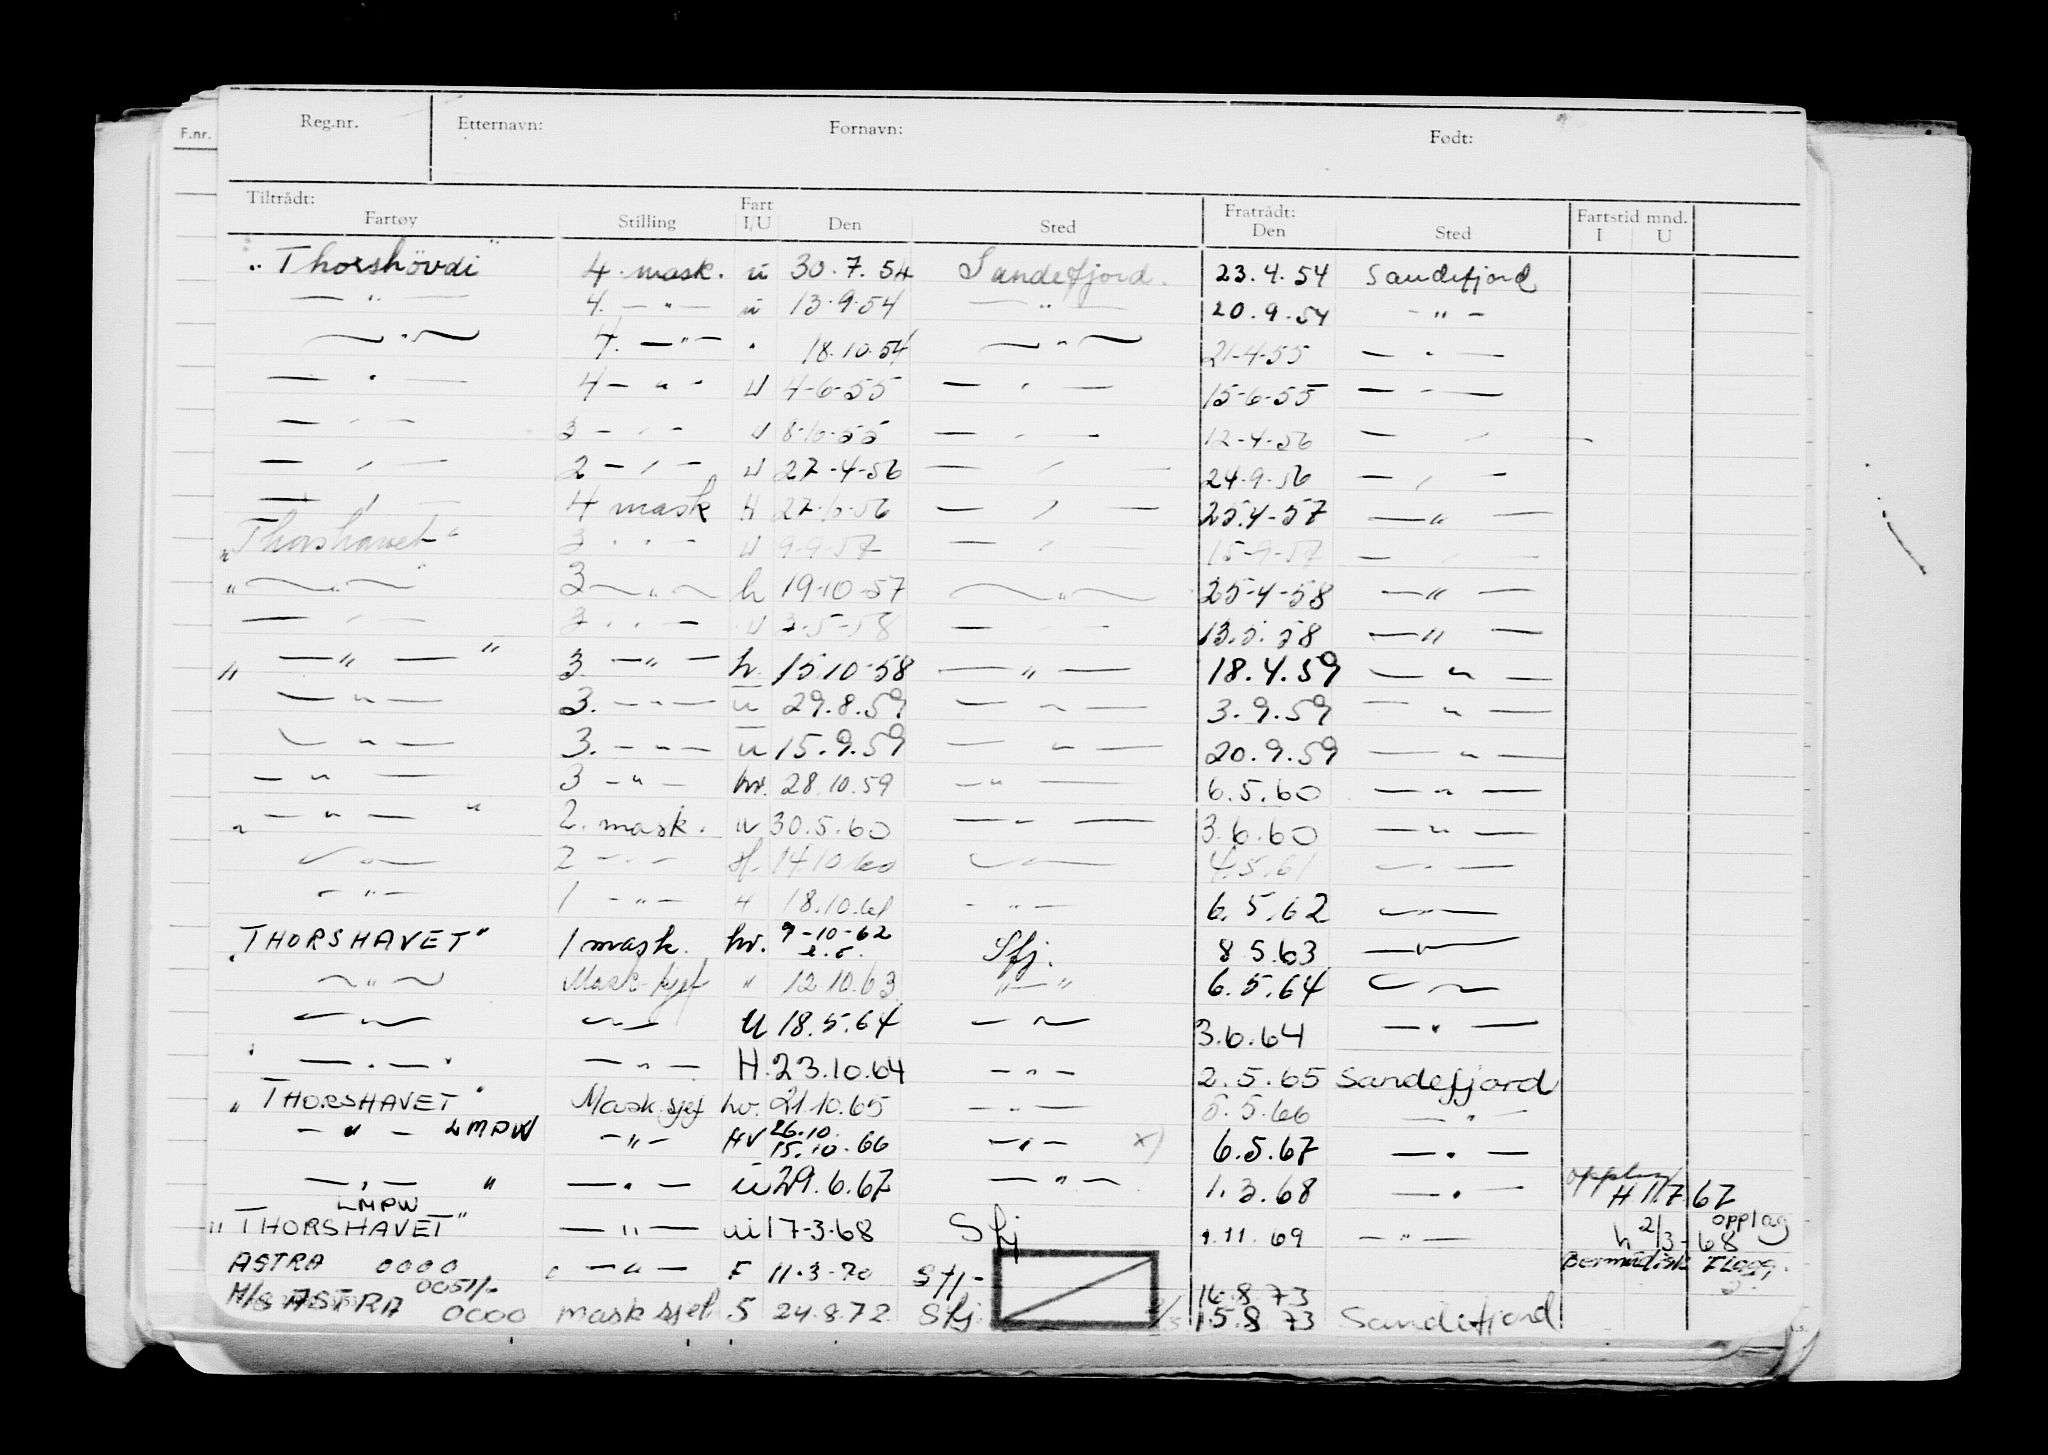 F.nr.
Reg.nr. Etternavn: Fornavn: Født:
Tiltrådt: Fratrådt: Fartstid mnd.
Fartøy Stilling Fart I/U Den Sted Den Sted I U
"Thorshövdi" 4. mask. u 30.7.54 Sandefjord. 23.4.54 Sandefjord
— " — 4. — " — u 13.9.54 — " — 20.9.54 — " —
— " — 4. — " — " 18.10.54 — " — 21-4-55 — " —
— " — 4 — " — U 4-6-55 — " — 15-6-55 — " —
— " — 3 — " — U 8-10-55 — " — 12-4-56 — " —
— " — 2 — " — U 27-4-56 — " — 24-9-56 — " —
— " — 4 mask H 27-10-56 — " — 25.4-57 — " —
"Thorshavet" 3 — " — U 9-9-57 — " — 15-9-57 — " —
" — " — " 3 — " — h 19-10-57 — " — 25-4-58 — " —
— " — 3 — " — U 3-5-58 — " — 13.5.58 — " —
" — " — " 3. — " — h. 15.10-58 — " — 18.4.59 — " —
— " — 3. — " — u 29.8.59 — " — 3.9.59 — " —
— " — 3. — " — u 15.9.59 — " — 20.9.59 — " —
— " — 3 — " — hv. 28.10.59 — " — 6.5.60 — " —
" — " — " 2. mask. u 30.5.60 — " — 3.6.60 — " —
— " — 2 — " — 14.10.60 — " — 4.5.61 — " —
— " — 1 — " — " 18.10.61 — " — 6.5.62 — " —
"THORSHAVET" 1 mask. hv. 9-10-62 Sfj. 8.5.63 — " —
— " — Mask.sjef " 12.10.63 — " — 6.5.64 — " —
— " — — " — U 18.5.64 — " — 3.6.64 — " —
" — " — " — " — H. 23.10.64 — " — 2.5.65 Sandefjord
"THORSHAVET" Mask.sjef hv. 21.10.65 — " — 5.5.66 — " —
— " — LMPW — " — HV 26.10. 15.10.66 — " — x) 6.5.67 — " —
— " — " — " — u 29.6.67 — " — 1.3.68 — " — opplag H 11.7.67
LMPW
"THORSHAVET" — " — u 17-3-68 Sfj 1.11.69 — " — h 2/3-68 opplag
ASTRA 0000 — " — F 11.3-70 Sfj- 16.8.73 Bermudisk Flagg.
0051/-
M/S ASTRA 0000 mask sjef S 24.8.72 Sfj. 15.8.73 Sandefjord